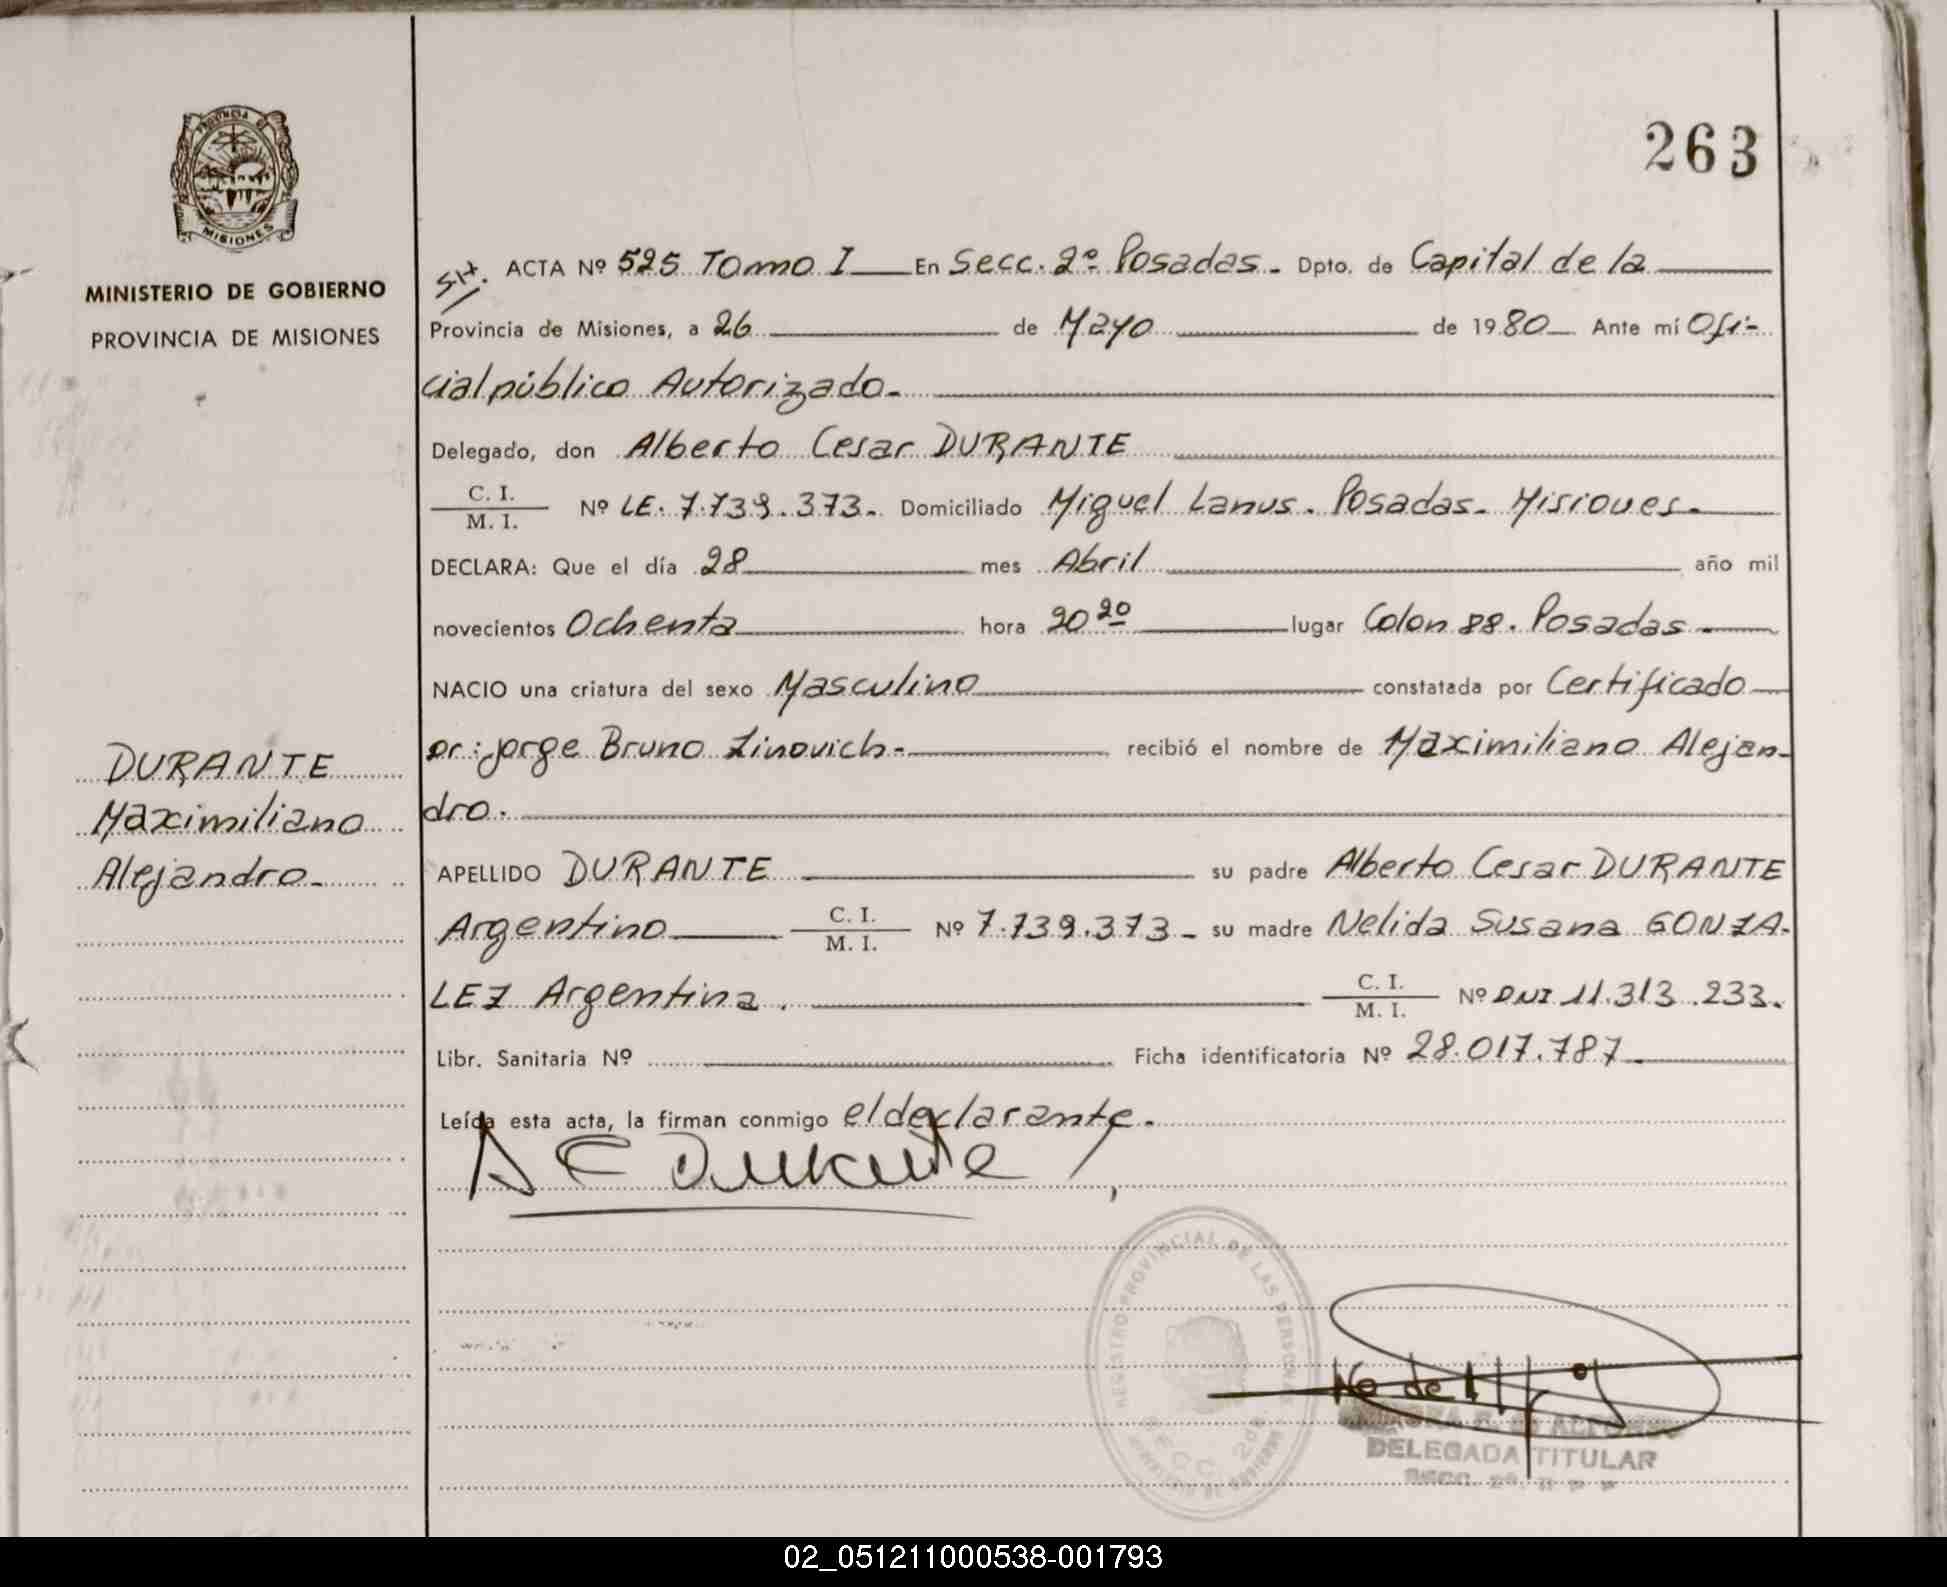 263
PROVINCIA DE
MISIONES
MINISTERIO DE GOBIERNO
PROVINCIA DE MISIONES
ACTA Nº 525 Tomo I En Secc. 2º Posadas. Dpto. de Capital de la
Provincia de Misiones, a 26 de Mayo de 1980 Ante mí Ofi-
cial público Autorizado.
Delegado, don Alberto Cesar DURANTE
C. I.
M. I. Nº LE. 7.739.373. Domiciliado Miguel Lanus. Posadas. Misiones.
DECLARA: Que el día 28 mes Abril año mil
novecientos Ochenta hora 20 20 lugar Colon 88. Posadas.
NACIO una criatura del sexo Masculino constatada por Certificado
DURANTE
Maximiliano
Alejandro.
Dr: Jorge Bruno Zinovich.- recibió el nombre de Maximiliano Alejan-
dro.
APELLIDO DURANTE su padre Alberto Cesar DURANTE
Argentino C. I.
M. I. Nº 7.739.373. su madre Nelida Susana GONZA-
LEZ Argentina. C. I.
M. I. Nº DNI 11.313.233.
Libr. Sanitaria Nº Ficha identificatoria Nº 28.017.787
Leída esta acta, la firman conmigo el declarante.
A C Durante
REGISTRO PROVINCIAL DE LAS PERSONAS
SECC. 2da.
DELEGADA TITULAR
SECC. 2ª.
02_051211000538-001793